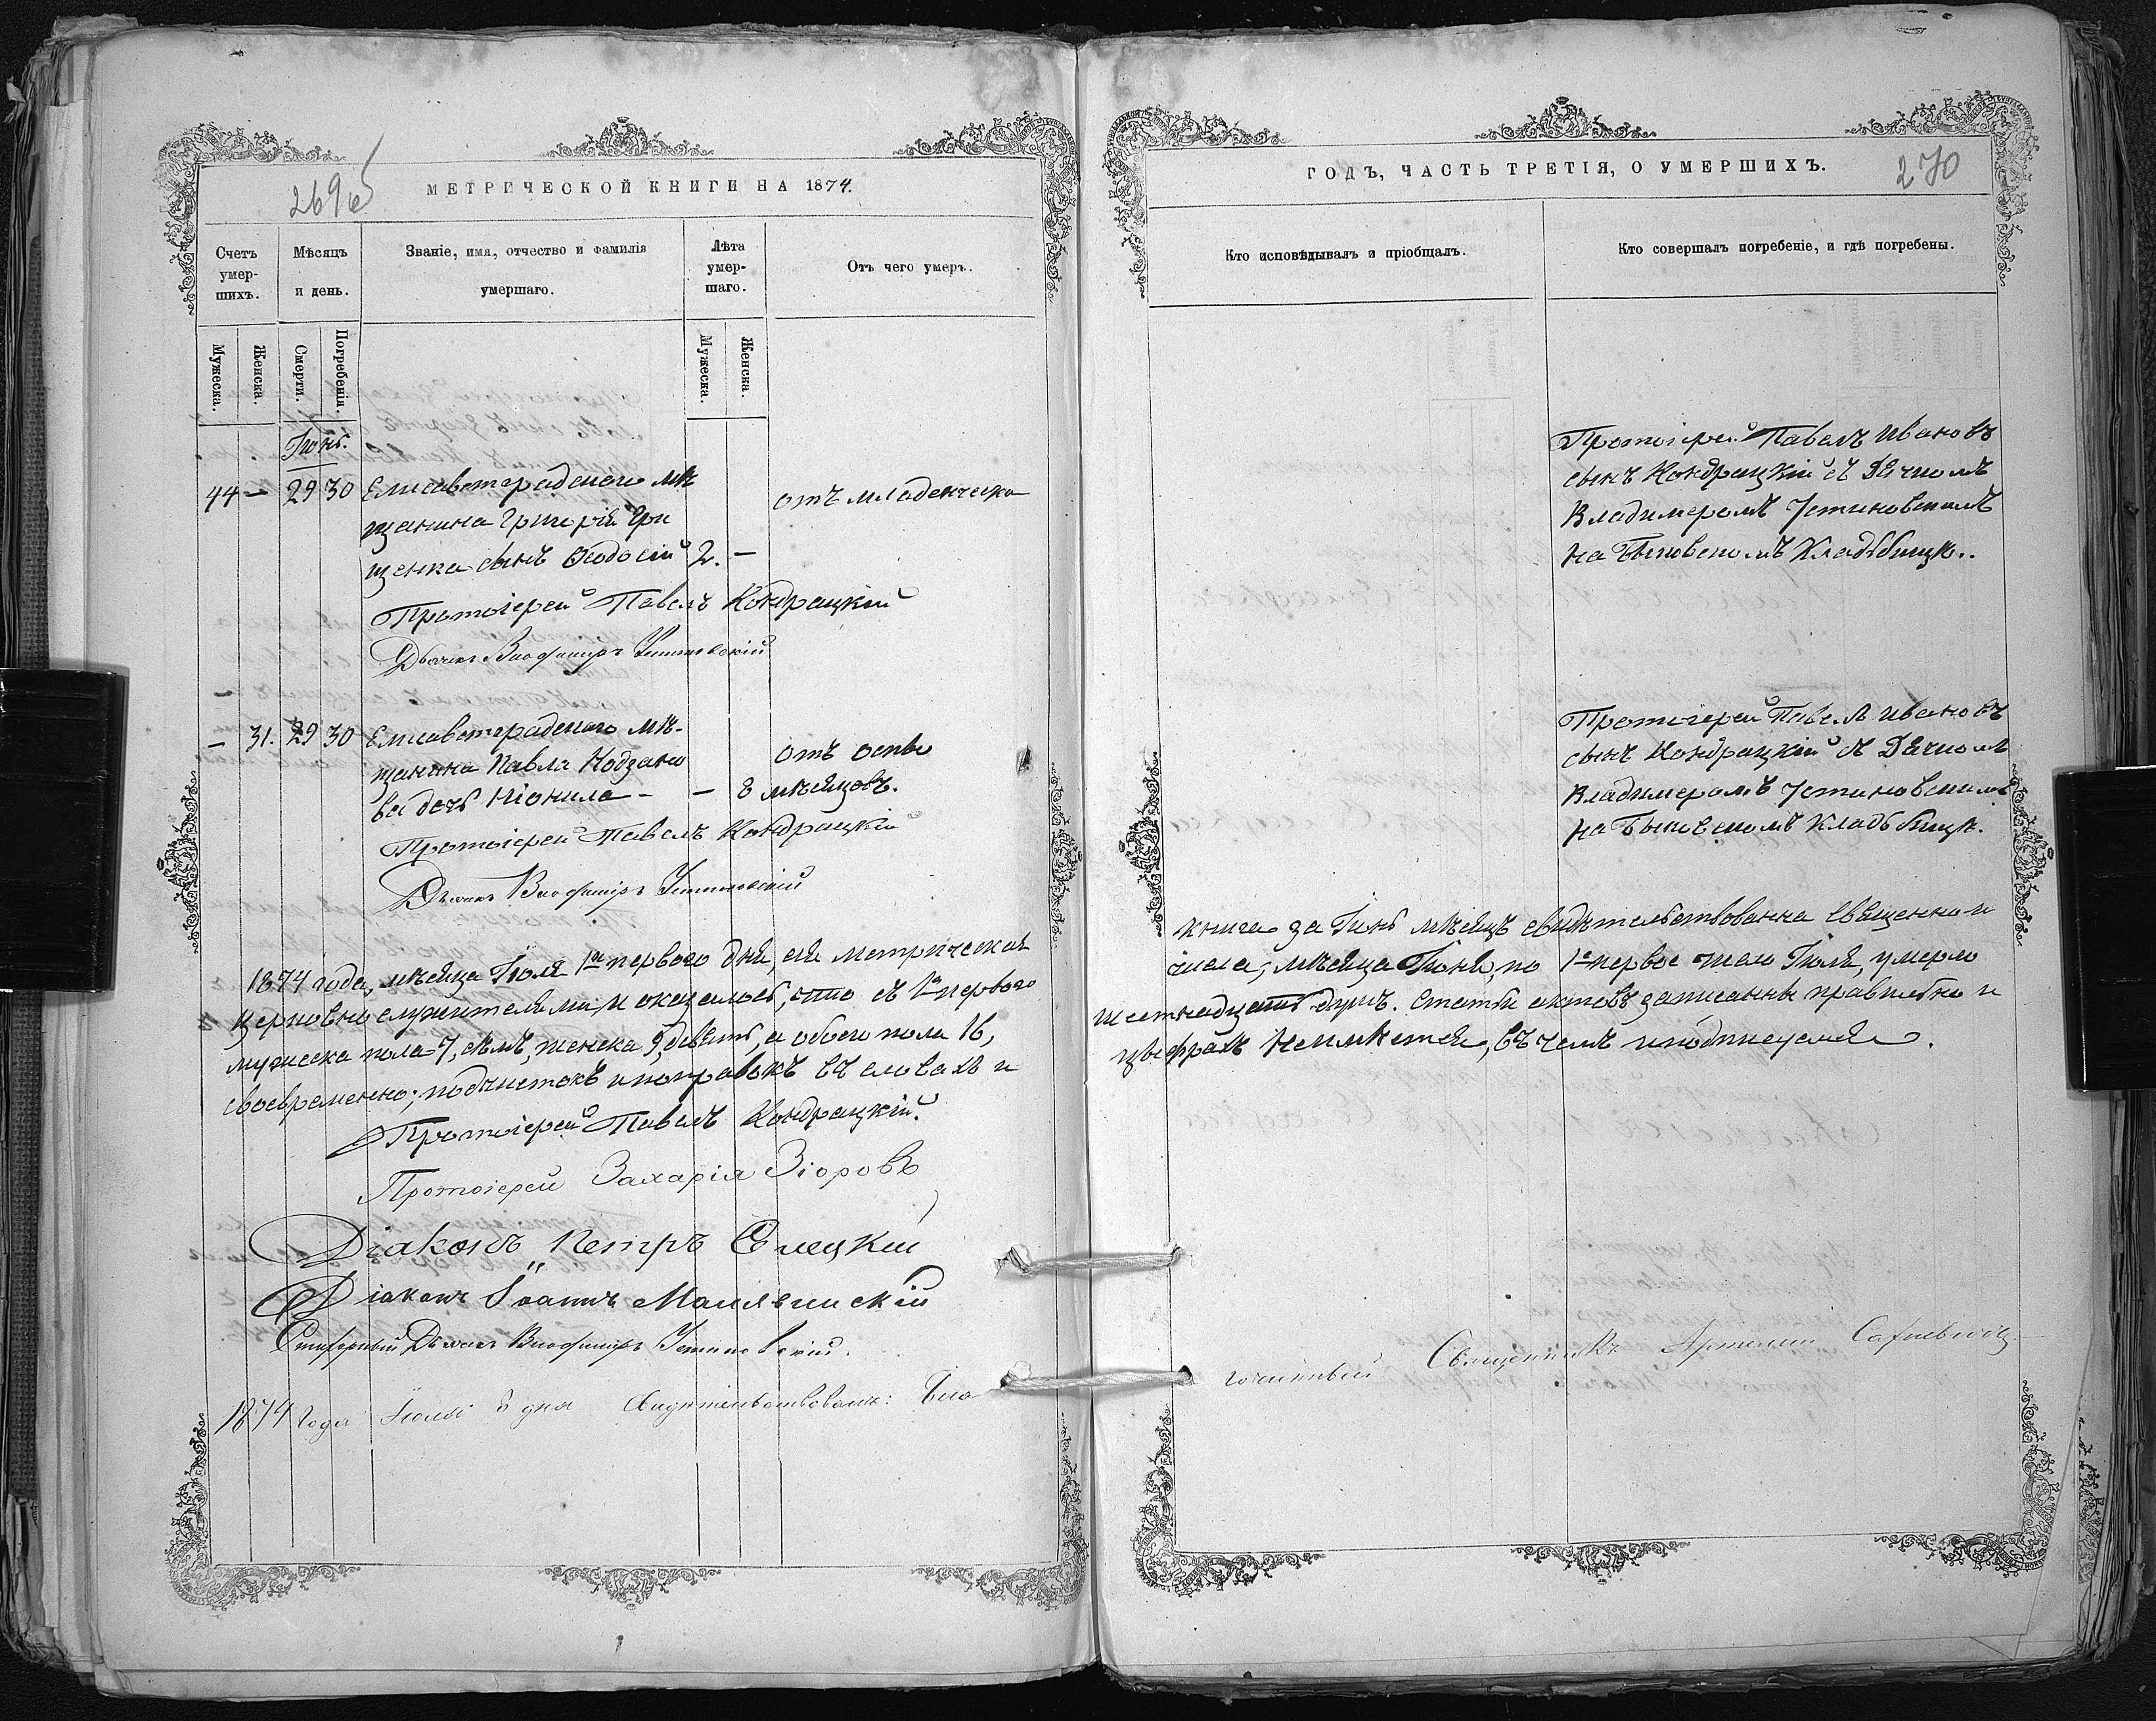 269 об
МЕТРИЧЕСКОЙ КНИГИ НА 1874.
Счетъ умер-шихъ.
Мѣсяцъ и день.
Званіе, имя, отчество и фамилія умершаго.
Лѣта умер-шаго.
Отъ чего умеръ.
Мужеска.
Женска.
Смерти.
Погребенія.
Мужеска.
Женска.
Іюнь.
44 — 29 30 Елисаветградскаго мѣ
щанина Григорія Гри
щенка сынъ Ѳеодосій 2. —
отъ младенческа
Протоіерей Павелъ Кондрацкій
Дьячекъ Владимиръ Устиновскій
— 31. 29 30 Елисаветградскаго мѣ-
щанина Павла Кодзако
ва дочь Неонила — — 8 мѣсяцовъ.
отъ оспы
Протоіерей Павелъ Кондрацкій
Дьячекъ Владимиръ Устиновскій
1874 года, мѣсяца Іюля 1го перваго дня, сія метрическая
церковно служителями, и оказалось, что съ 1го перваго
мужеска пола 7, семь, женска 9, девять, а обоего пола 16,
своевременно; подчистокъ и поправокъ въ словахъ и
Протоіерей Павелъ Кондрацкій.
Протоіерей Захарія Зіоровъ
Діаконъ Петръ Елецкій
Діаконъ Іоаннъ Малявинскій
Дьячекъ Владимиръ Устиновскій.
1874 года Іюля 8 дня Свидѣтельствовалъ: Бла
ГОДЪ, ЧАСТЬ ТРЕТІЯ, О УМЕРШИХЪ.
270
Кто исповѣдывалъ и пріобщалъ.
Кто совершалъ погребеніе, и гдѣ погребены.
Протоіерей Павелъ Ивановъ
сынъ Кондрацкій съ Дячкомъ
Владимеромъ Устиновскимъ
на Быковскомъ Кладбищѣ.
Протоіерей Павелъ Ивановъ
сынъ Кондрацкій съ Дячкомъ
Владимеромъ Устиновскимъ
на Быковскомъ Кладбищѣ.
книга за Іюнь мѣсяцъ свидѣтельствованна священно и
числа, мѣсяца Іюня, по 1е первое число Іюля, умерло
шестнадцать душъ. Статьи актовъ записаны правильно и
цыфрахъ неимѣется, въ чемъ и подписуемся.
гочинный Священникъ